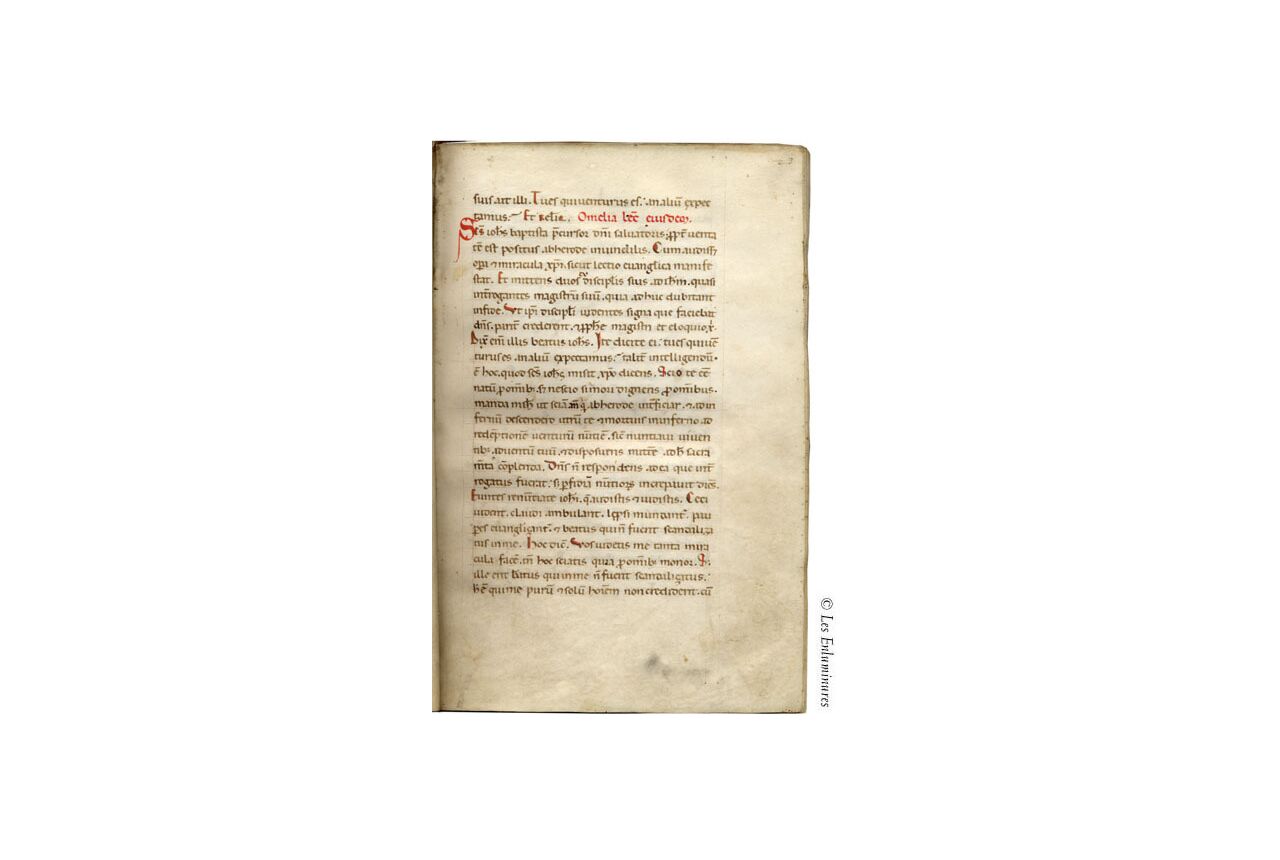 suis. ait illi. Tu es qui venturus es. an aliū expec
tamus. Et reliq̄. Omelia lect̄ eiusdem.
Sc̄s ioh̄s baptista p̄cursor dn̄i salvatoris, ꝓpt̄ verita
tē est positus ab herode in vinculis. Cum audiss&
oꝑa & miracula xp̄i. sicut lectio evanglica manife
stat. Et mittens duos discipl̄is suis. ad ih̄m. quasi
int̄rogantes magistrū suū. quia adhuc dubitant
in fide. Ut ip̄i discipl̄i videntes signa que faciebat
dn̄s. credent. magistri et eloquio
Dix̄ em̄ illis beatus ioh̄s. Ite dicite ei. tu es qui vē
turus es. an aliū expectamus. talit̄ intelligendū.
ē hoc. quod sc̄s ioh̄s misit xp̄o dicens. Scio te eē
natū ꝓ om̄ib; & nescio si mori digneris ꝓ om̄ibus.
manda mich̄ ut sciā ab herode int̄ficiar. & ad in
fernū descendero utrū te & mortuis in inferno ad
redēptionē venturū nūtiē. sic̄ nuntiavi viven
tib; adventū tuū. & disposueris mitt̄e sacra
m̄ta cōplenda. Dn̄s ū respondens ad ea que int̄
rogatus fuerat. si ꝑfidiā nūtiorū increpavit dicēs.
Euntes renūtiate ioh̄i. q̄ audistis & vidistis. Ceci
vident. claudi ambulant. lep̄si mundant̄. pau
ꝑes evanglicant̄. & beatus qui n̄ fuerit scandaliza
tus in me. Hoc dic̄. Vos videtis me tanta mira
cula facē. tn̄ hoc sciatis quia ꝓ om̄ib; morior.
ille erit beatus qui in me n̄ fuerit scandaliçatus.
h̄ ē qui me purū & solū hoīem non crediderit. cū
© Les Enluminures